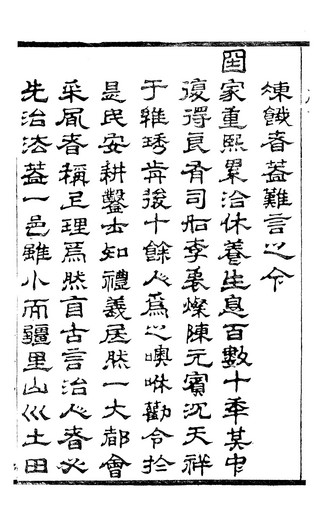 凍餓者蓋難言之今
國家重熙累洽休養生息百數十年其中
復得良有司如李燦陳元賓沈天祥
于維琇前後十餘人為之噢咻勸令於
是民安耕鑿士知禮義居然一大都會
采風者稱上理焉然自古言治人者必
先治法蓋一邑雖小而疆里山川土田